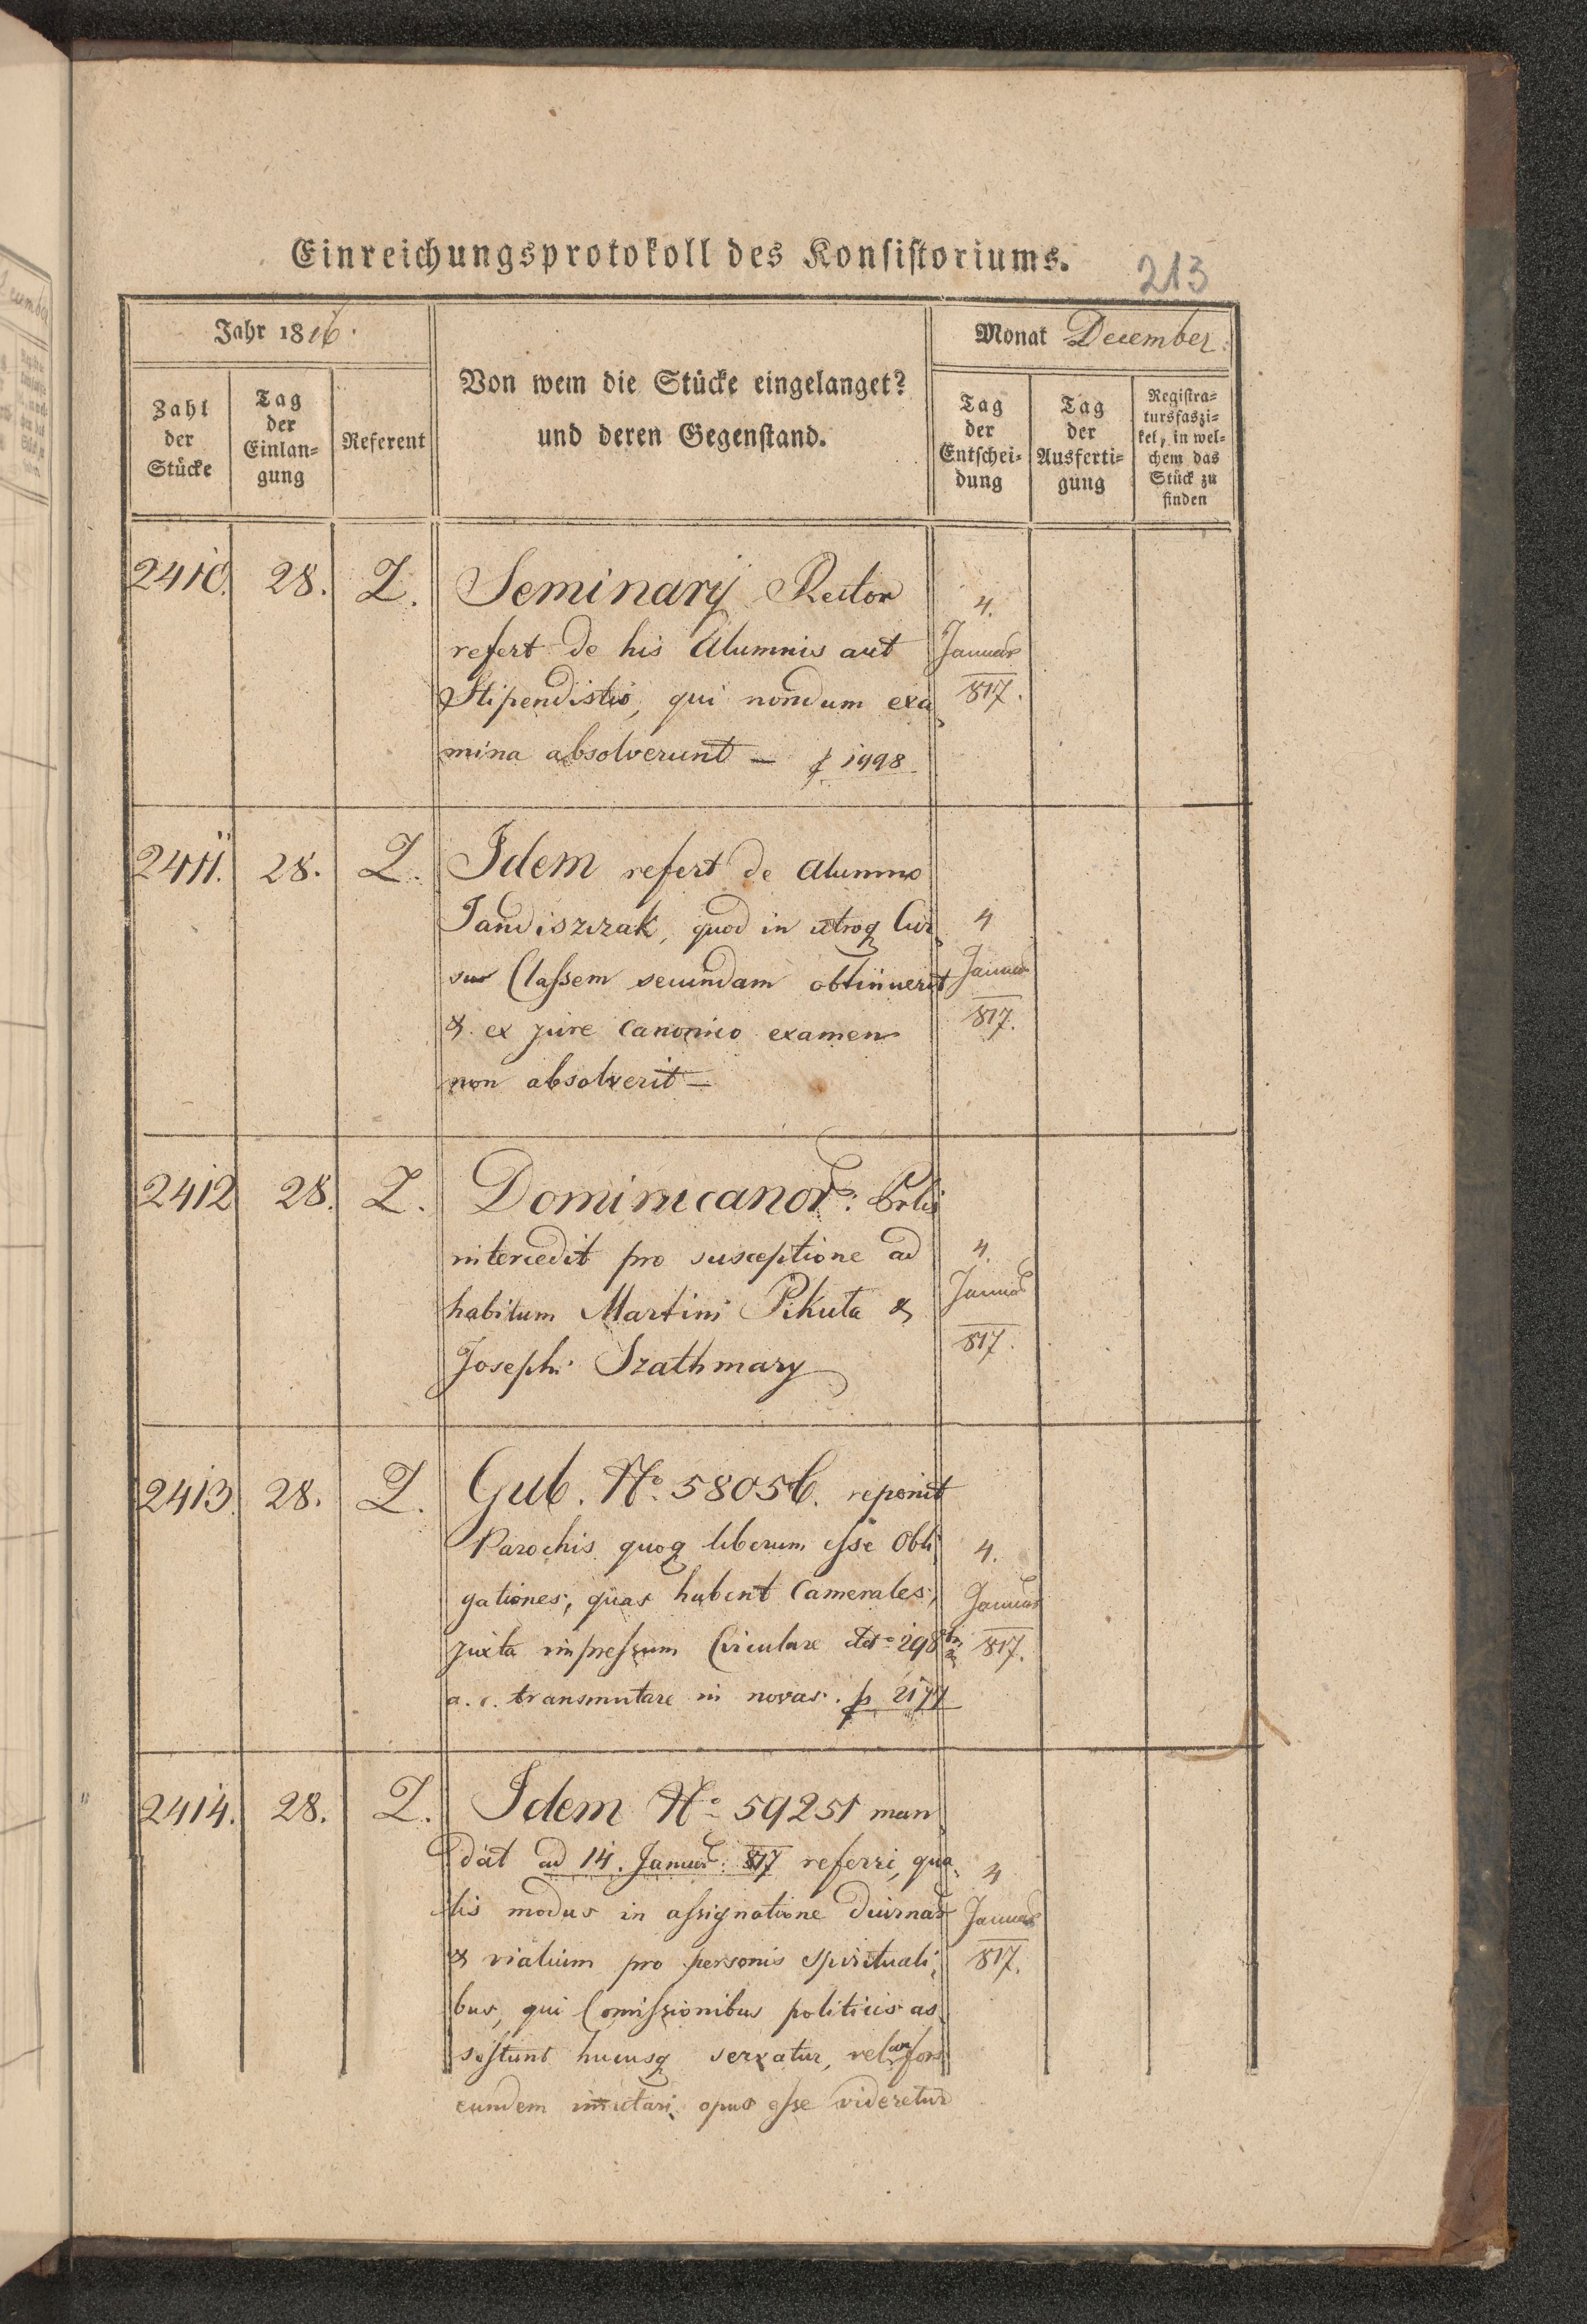 Einreichungsprotokoll des Konsistoriums.
213
Jahr 1816.
Monat December.
Zahl der Stücke
Tag der Einlan-gung
Referent
Von wem die Stücke eingelanget?
und deren Gegenstand.
Tag der Entschei-dung
Tag der Ausferti-gung
Registra-tursfaszi-kel, in wel-chem das Stück zu finden
2410. 28. Z. Seminarij Rector
refert de his Alumnis aut
Stipendistis, qui nondum exa
mina absolverunt — p 1998
4.
Januar
817.
2411. 28. Z. Idem refert de Alumno
quod in utroq Cur
su Classem secundam obtinuerit
& ex jure canonico examen
non absolverit —
4
Januar
817.
2412 28. Z. Dominicanor:
intercedit pro susceptione ad
habitum Martini Pikuta &
Josephi Szathmary
4.
Januar
817.
2413. 28. Z. Gub. No. 58056. reponit
Parochis quoq liberum esse Obli
gationes, quas habent Camerales,
juxta impressum Circulare 298
a. c. transmutare in novas. p 2177
4.
Januar
817.
2414. 28. Z. Idem No 59251 man
dat ad 14. Januar: 817 referri, qua
lis modus in assignatione diurnar
& vialium pro personis spirituali
bus, qui Comissionibus politicis as
sistunt hucusq servatur, vel an fors
eundem imutari opus esse videretur
4
Januar
817.